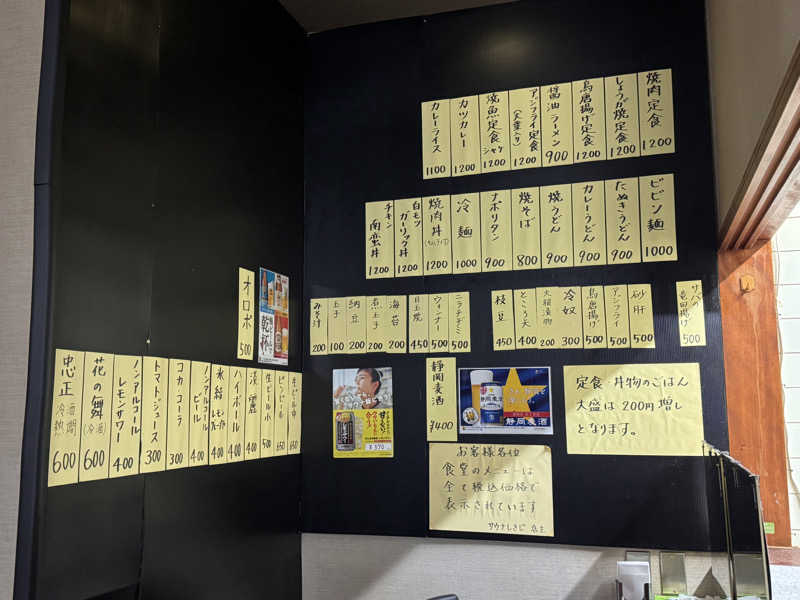 焼肉定食 1200
しょうが焼定食 1200
鳥唐揚げ定食 1200
醤油ラーメン 900
アジフライ定食 1200
焼魚定食 シャケ 1200
カツカレー 1200
カレーライス 1100
ビビン麺 1000
たぬきうどん 900
カレーうどん 900
焼うどん 900
焼そば 800
ナポリタン 900
冷麺 1000
焼肉丼 1200
白モツガーリック丼 1200
チキン南蛮丼 1200
サバの竜田揚げ 500
砂肝 500
アジフライ 500
鳥唐揚げ 500
冷奴 300
大根漬物 200
ところ天 400
枝豆 450
ニラチヂミ 500
ウィンナー 500
目玉焼 450
海苔 200
煮玉子 200
納豆 200
玉子 100
みそ汁 200
オロポ 500
乾杯
生ビール中 650
生ビール小 500
淡麗 450
ハイボール 400
氷結 400
ノンアルコールビール 400
コカ・コーラ 300
トマトジュース 300
レモンサワー 400
花の舞(冷酒) 600
忠正 600
静岡麦酒 ¥700
静岡麦酒
¥370
定食・丼物のごはん
大盛は200円増し
となります。
お客様各位
食堂のメニューは
全て税込価格で
表示されています
サウナしきじ 店主